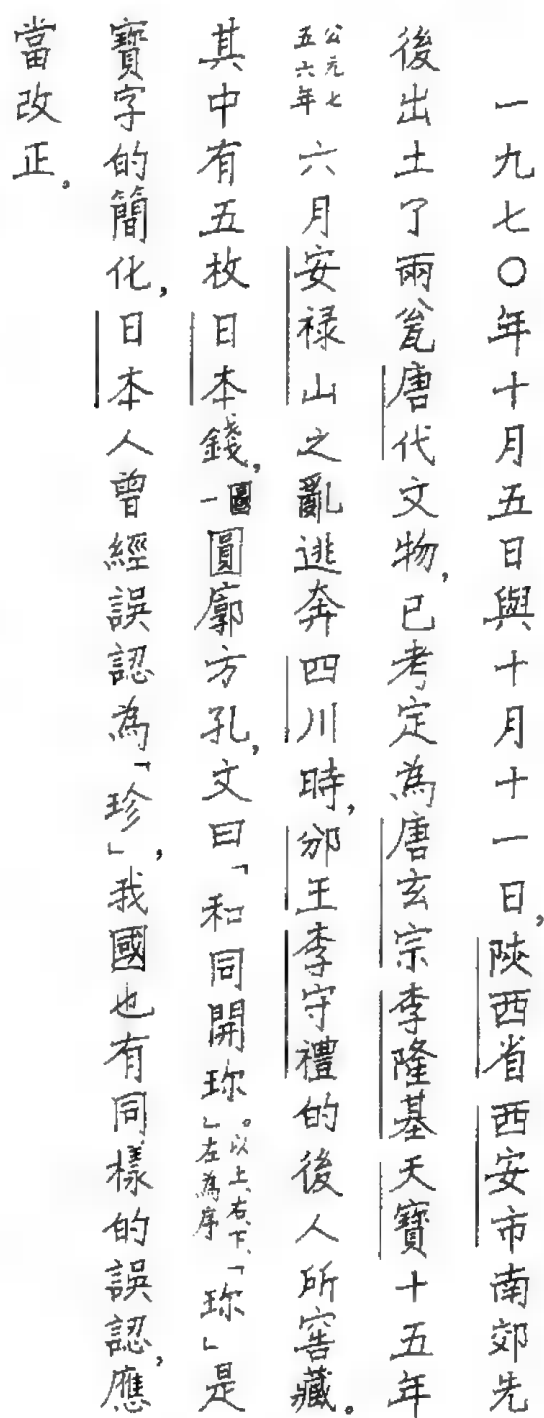 一九七〇年十月五日與十月十一日，陝西省西安市南郊先
後出土了兩瓮唐代文物，已考定為唐玄宗李隆基天寶十五年
公元七五六年六月安禄山之亂逃奔四川時，邠王李守禮的後人所窖藏。
其中有五枚日本錢，圖一圓廓方孔，文曰「和同開珎」。以上、右、下、左為序「珎」是
寶字的簡化，日本人曾經誤認為「珍」，我國也有同樣的誤認，應
當改正。